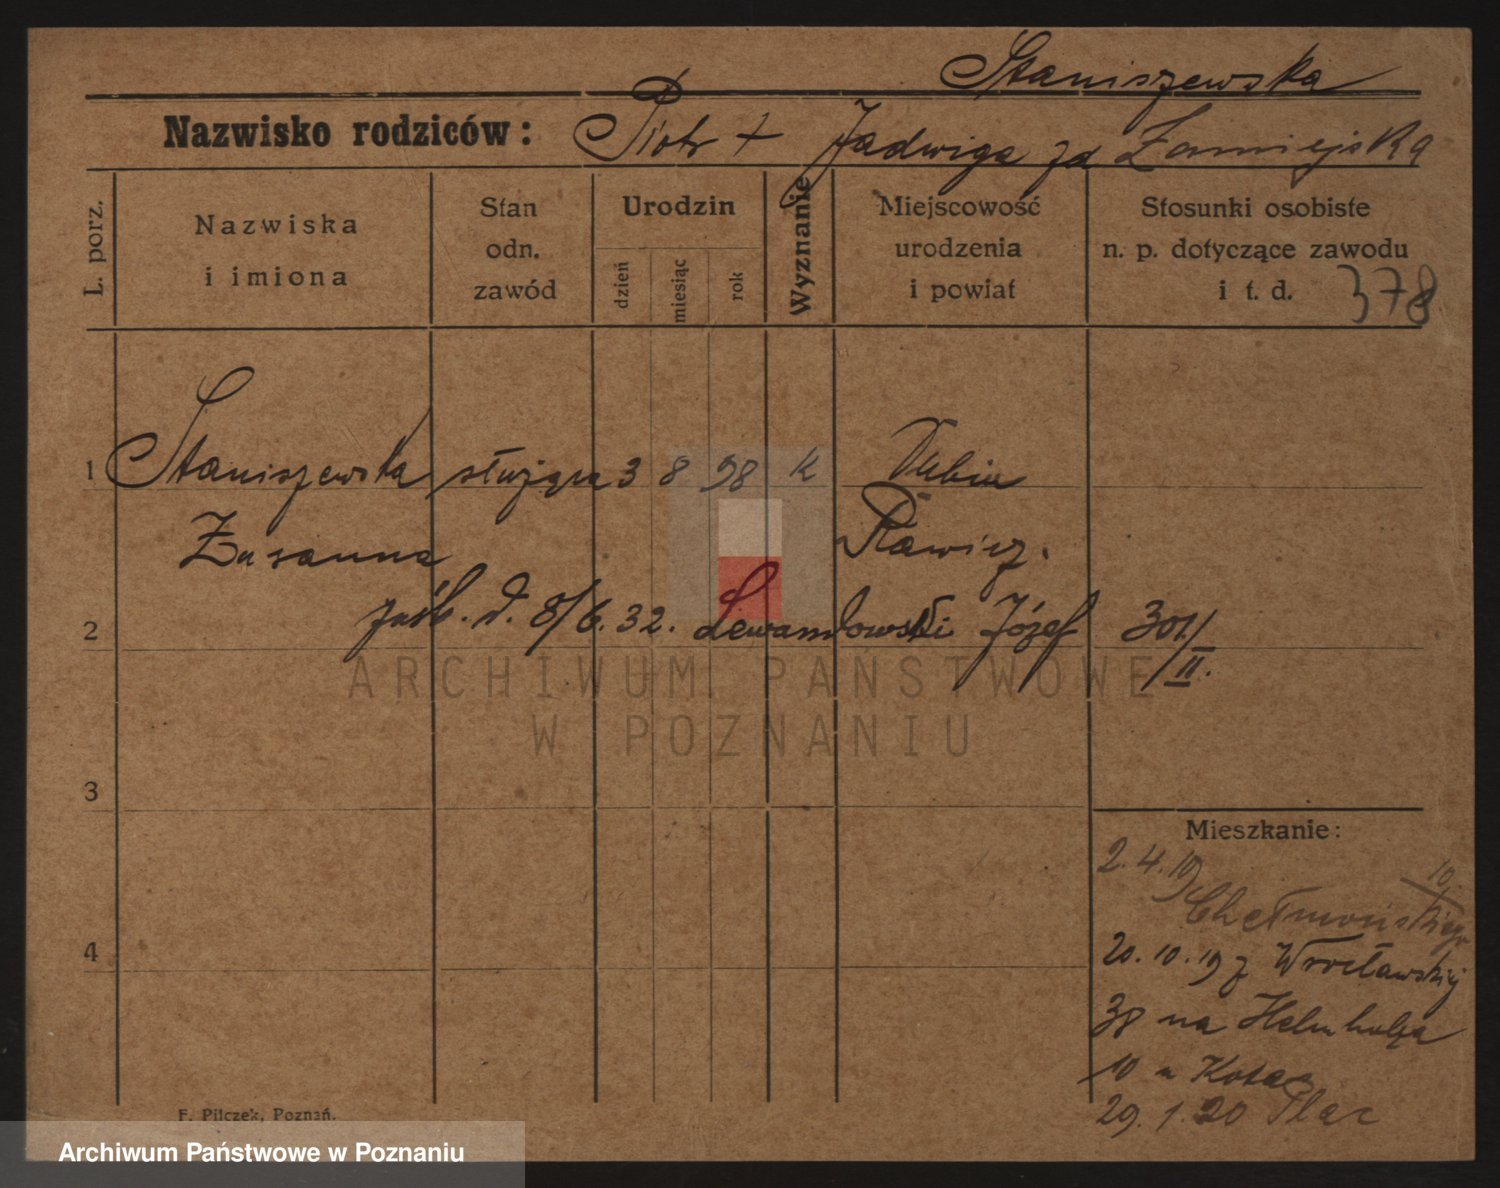 Staniszewska
Nazwisko rodziców: Piotr + Jadwiga zd
L. porz.
Nazwiska
i imiona
Stan
odn.
zawód
Urodzin
dzień
miesiąc
rok
Wyznanie
Miejscowość
urodzenia
i powiat
Stosunki osobiste
n. p. dotyczące zawodu
i t. d. 378
1 Staniszewska służąca 3 8 98 k Dubin
Zusanna Rawicz.
2 zaśl. d. 8/6. 32. Lewandowski Józef 301/
II.
3
Mieszkanie:
2. 4. 19 10
Chełmońskiego
4 20. 10. 19 z Wrocławskiej
38 na Helmholza
10 u
29. 1. 20 Plac
F. Pilczek, Poznań.
ARCHIWUM PAŃSTWOWE
W POZNANIU
Archiwum Państwowe w Poznaniu